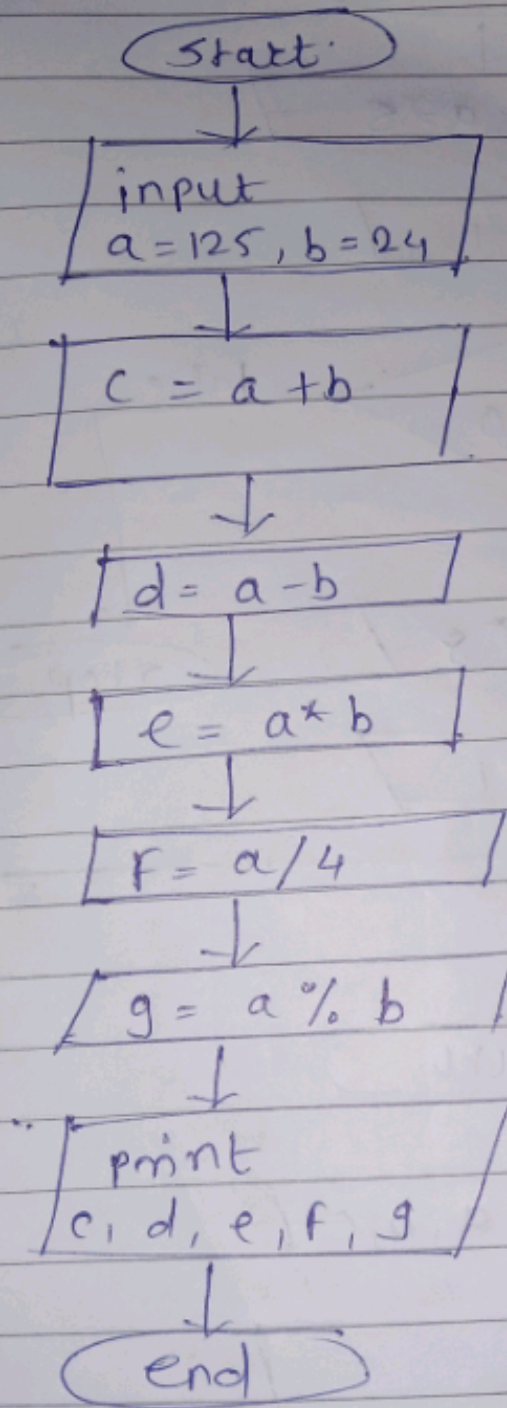 Start.
input
a = 125, b = 24
c = a + b
d = a - b
e = a * b
f = a / 4
g = a % b
print
c, d, e, f, g
end